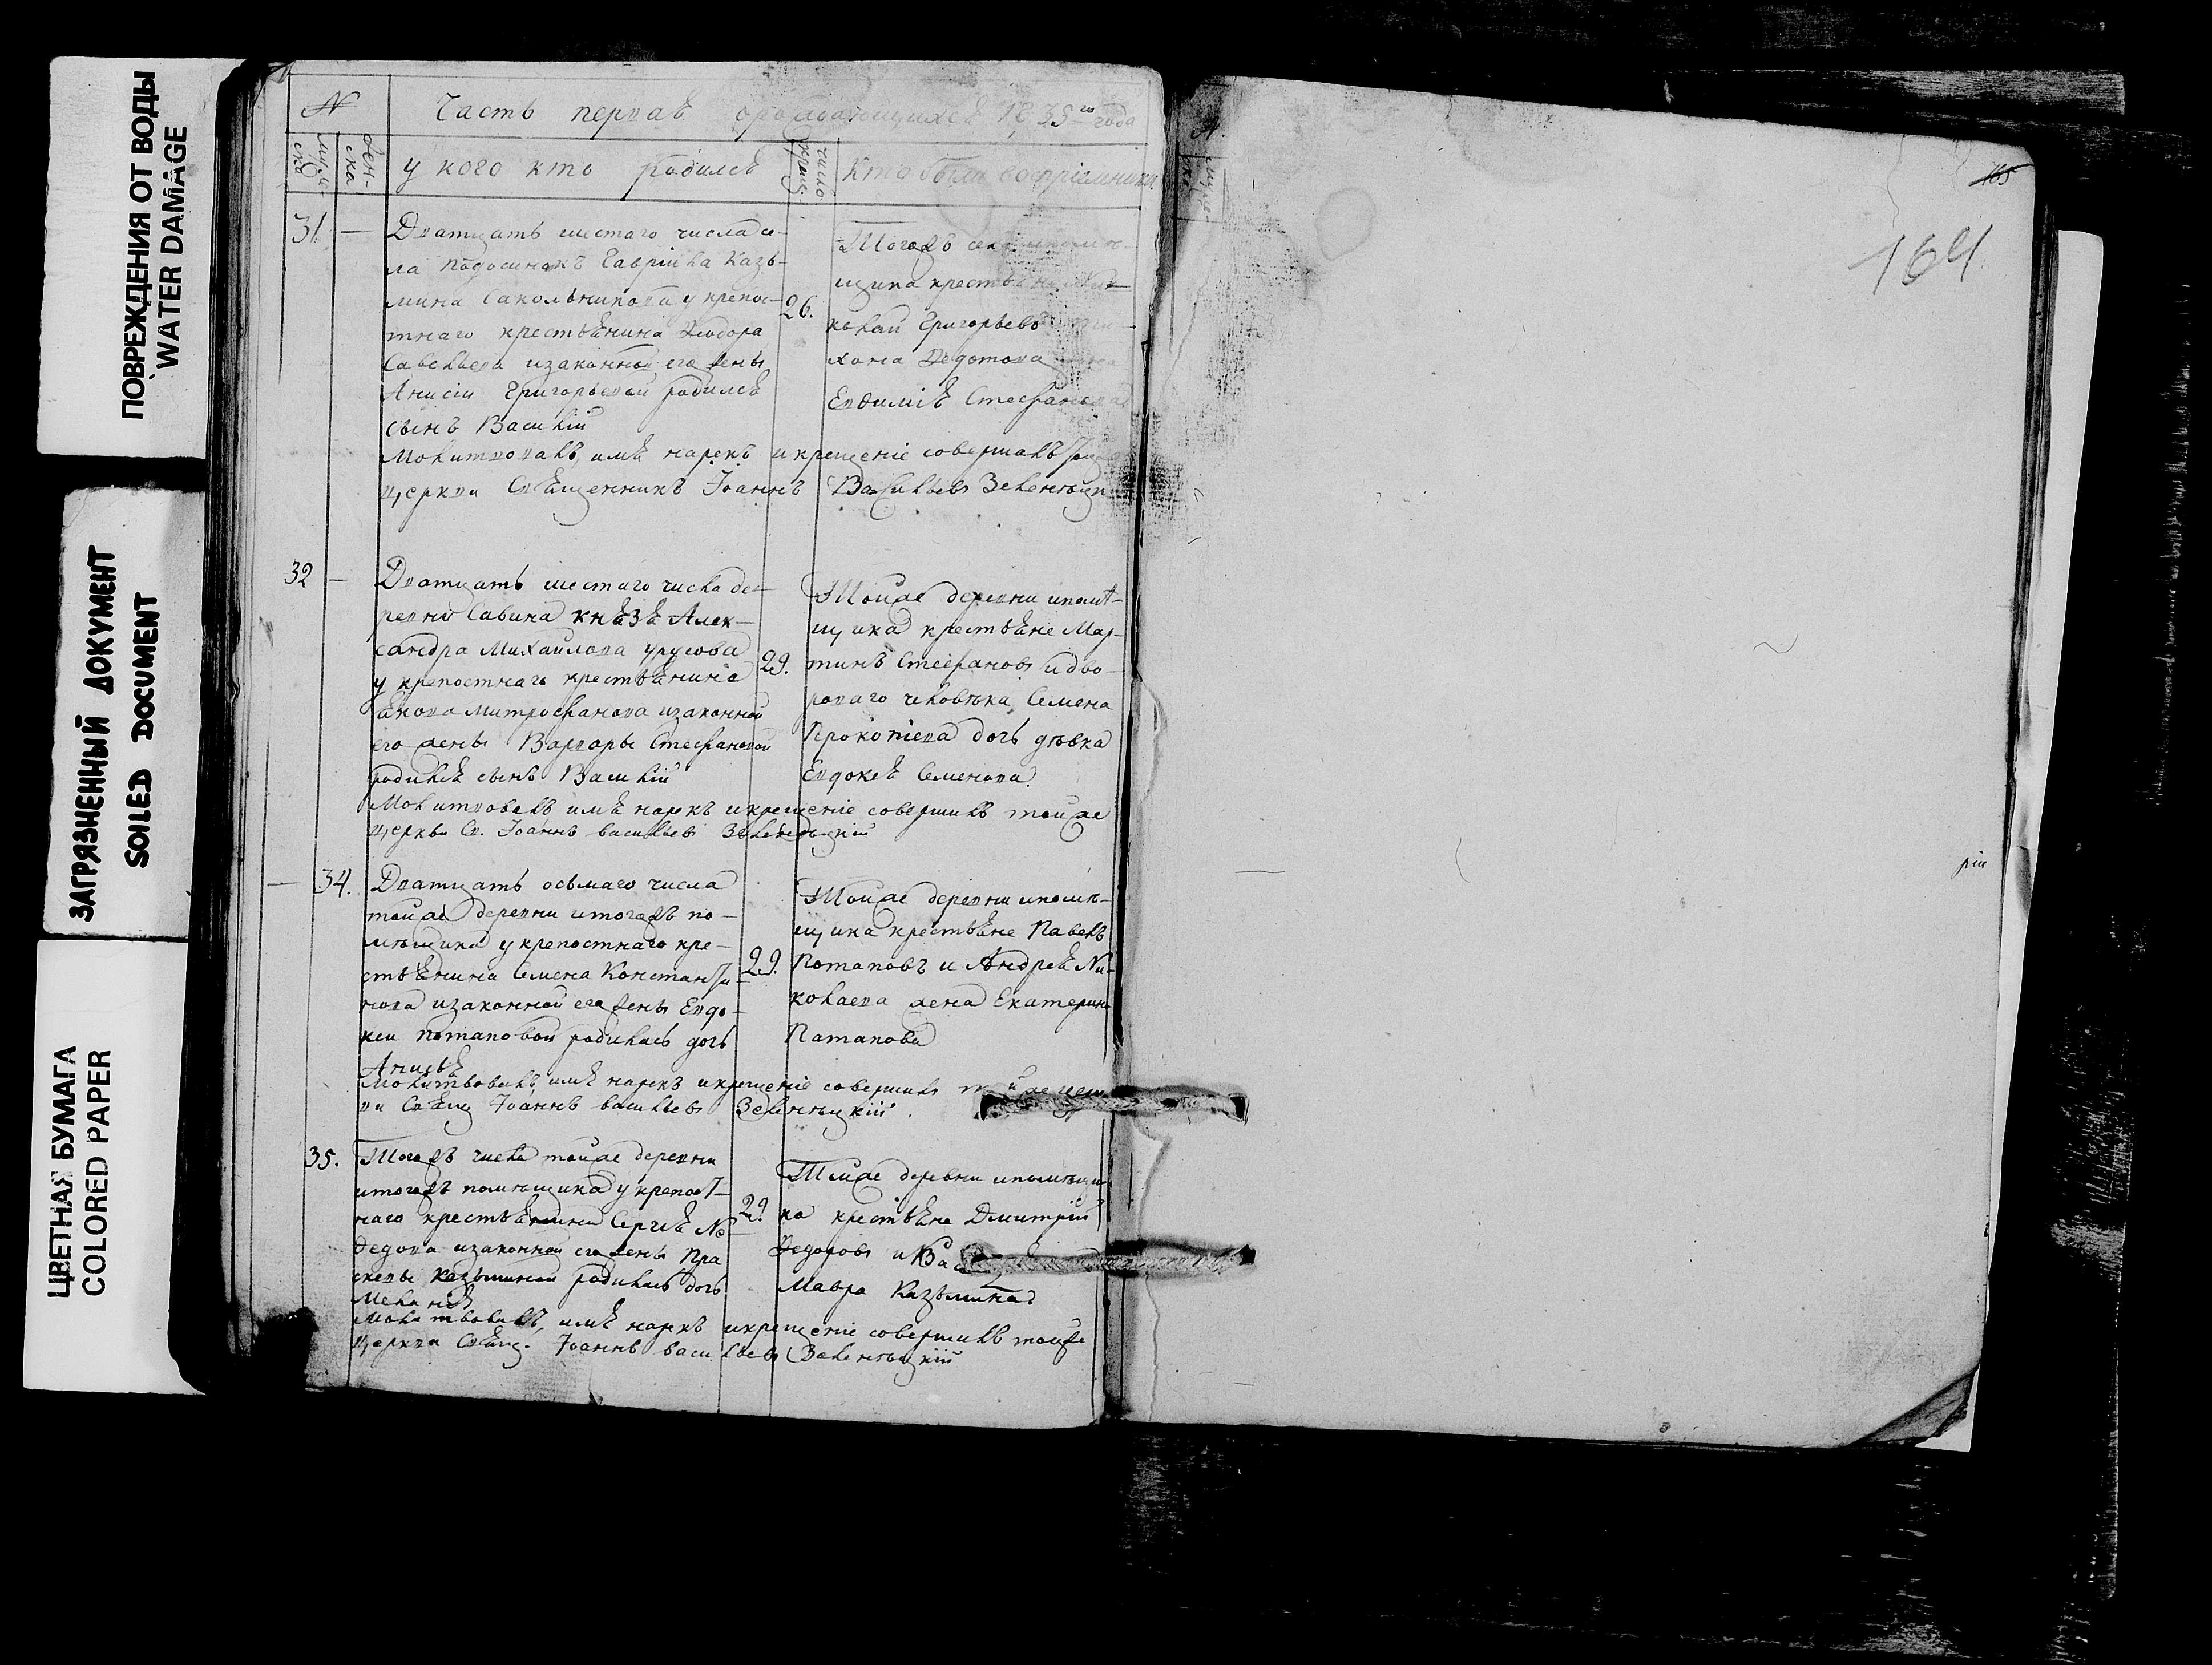 ПОВРЕЖДЕНИЯ ОТ ВОДЫ
WATER DAMAGE
ЗАГРЯЗНЕННЫЙ ДОКУМЕНТ
SOILED DOCUMENT
ЦВЕТНАЯ БУМАГА
COLORED PAPER
№ Часть первая 1835го года
муже-
ска
жен-
ска
у кого кто родился
число
крещ:
Кто были воспріемники
31. —
Дватцать шестаго числа се-
ла Подосинокъ Гавріила Казь-
мина Сакольникова у крепос-
тнаго крестьянина Ѳеодора
Савельева изаконной его жены
Анисіи Григорьевой родился
сынъ Василій
26.
Тогожъ села
щика крестьяне Ни-
колай Григорьевъ
хона Ѳедотова
Евдимія Стефанова
Молитвовалъ, имя нарекъ и крещеніе совершалъ
церкви Священникъ Іоаннъ Васильевъ
32 —
Дватцать шестаго числа де-
ревни Савина князя Алек-
сандра Михайлова урусова
у крепостнаго крестьянина
Якова Митрофанова изаконной
его жены Варвары Стефановой
родился сынъ Василій
29.
Тойже деревни ипомѣ-
щика крестьяне Мар-
тинъ Стефановъ идво-
роваго человѣка Семена
Прокопіева дочь дѣвка
Евдокея Семенова
Молитвовалъ имя нарекъ икрещеніе совершилъ тойже
церкви Св. Іоаннъ васильевъ Зеленецкій
— 34.
Дватцать осьмаго числа
тойже деревни итогожъ по-
мѣщика у крепостнаго кре-
стьянина Семена Константи-
нова изаконной его жены Евдо-
кеи Потаповой родилась дочь
Анисья
29.
Тойже деревни ипомѣ-
щика крестьяне Павелъ
Потаповъ и Андрея Ни-
колаева жена Екатерина
Патапова
Молитвовалъ, имя нарекъ икрещеніе совершилъ тойже церк-
ви Свящ Іоаннъ васильевъ Зеленецкій.
35.
Тогожъ числа тойже деревни
итогожъ помѣщика у крепост-
наго крестьянина Сергія
изаконной его жены Пра
сковьи Казьминой родилась дочь
Меланія
29
Тойже деревни ипомѣщи-
ка крестьяне Дмитрій
Ѳедоровъ и
Мавра Казьмина
Молитвовалъ, имя нарекъ икрещеніе совершилъ тойже
церкви Свящ. Іоаннъ васильевъ Зеленецкій
165
164
рiи